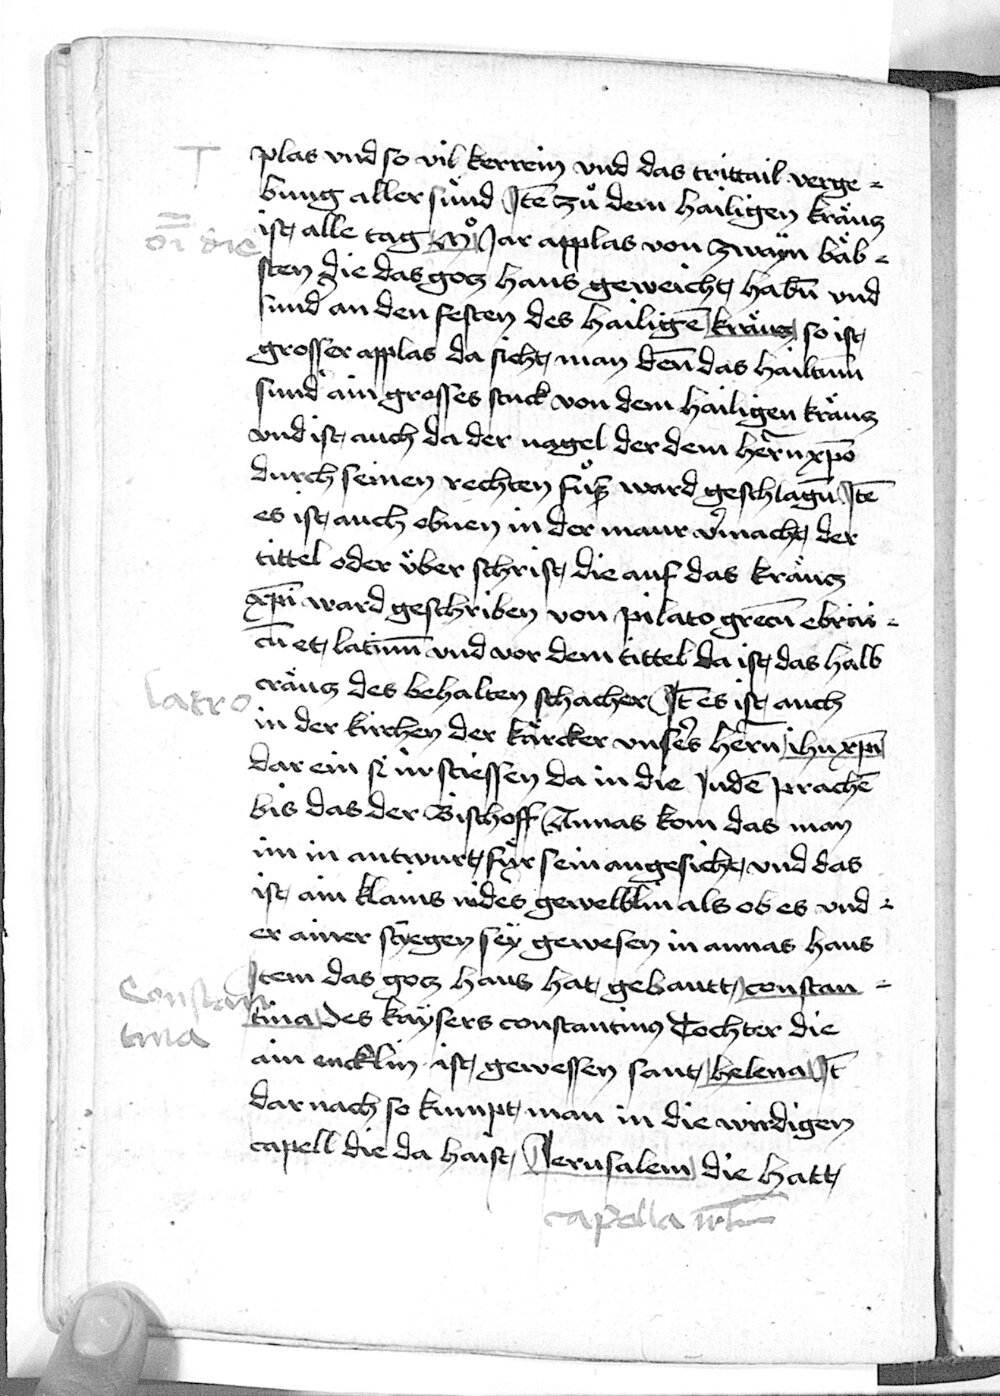 T
plas vnd so vil kerrein vnd das trittail verge=
bung aller sünd Itē zů dem hailigen kräuҍ
oī die
ist alle tag Mͦ Jar applas von zwayn bäb=
sten die das gotz haus geweicht habn̄ vnd
sund an den festen des hailigē kräutz so ist
grosser applas da sicht man den̄ das hailtum̄
sund ain grosses stuck von dem hailigen kräutz
vnd ist auch da der nagel der dem herrn̄ xp̄o
durch seinen rechten fůß ward geschlagn̄ Itē
es ist auch obnen in der maur vmacht der
tittel oder über schrift die auf das kräutz
xp̄i ward geschriben von pilato grecū ebrai=
cū et latinū vnd vor dem tittel da ist das halb
latro
cräutz des behalten schacher It̄ es ist auch
in der kirchen der kärcker vnsers herrn̄ ihu xp̄i
dar ein si in stiessen da in die Judē prachē
bis das der Bischoff Annas kom das man
im in antwurt für sein angesicht vnd das
ist ain klains nides gewelblin als ob es vnd=
er ainer styegen sey gewesen in annas haus
Constan
tina
Item das gotz haus hat gebautt constan=
tina des kaysers constantinus Tochter die
ain encklin ist gewessen sant helena It̄
darnach so kumpt man in die wirdigen
capell die da haist Jerusalem die hatt
capella